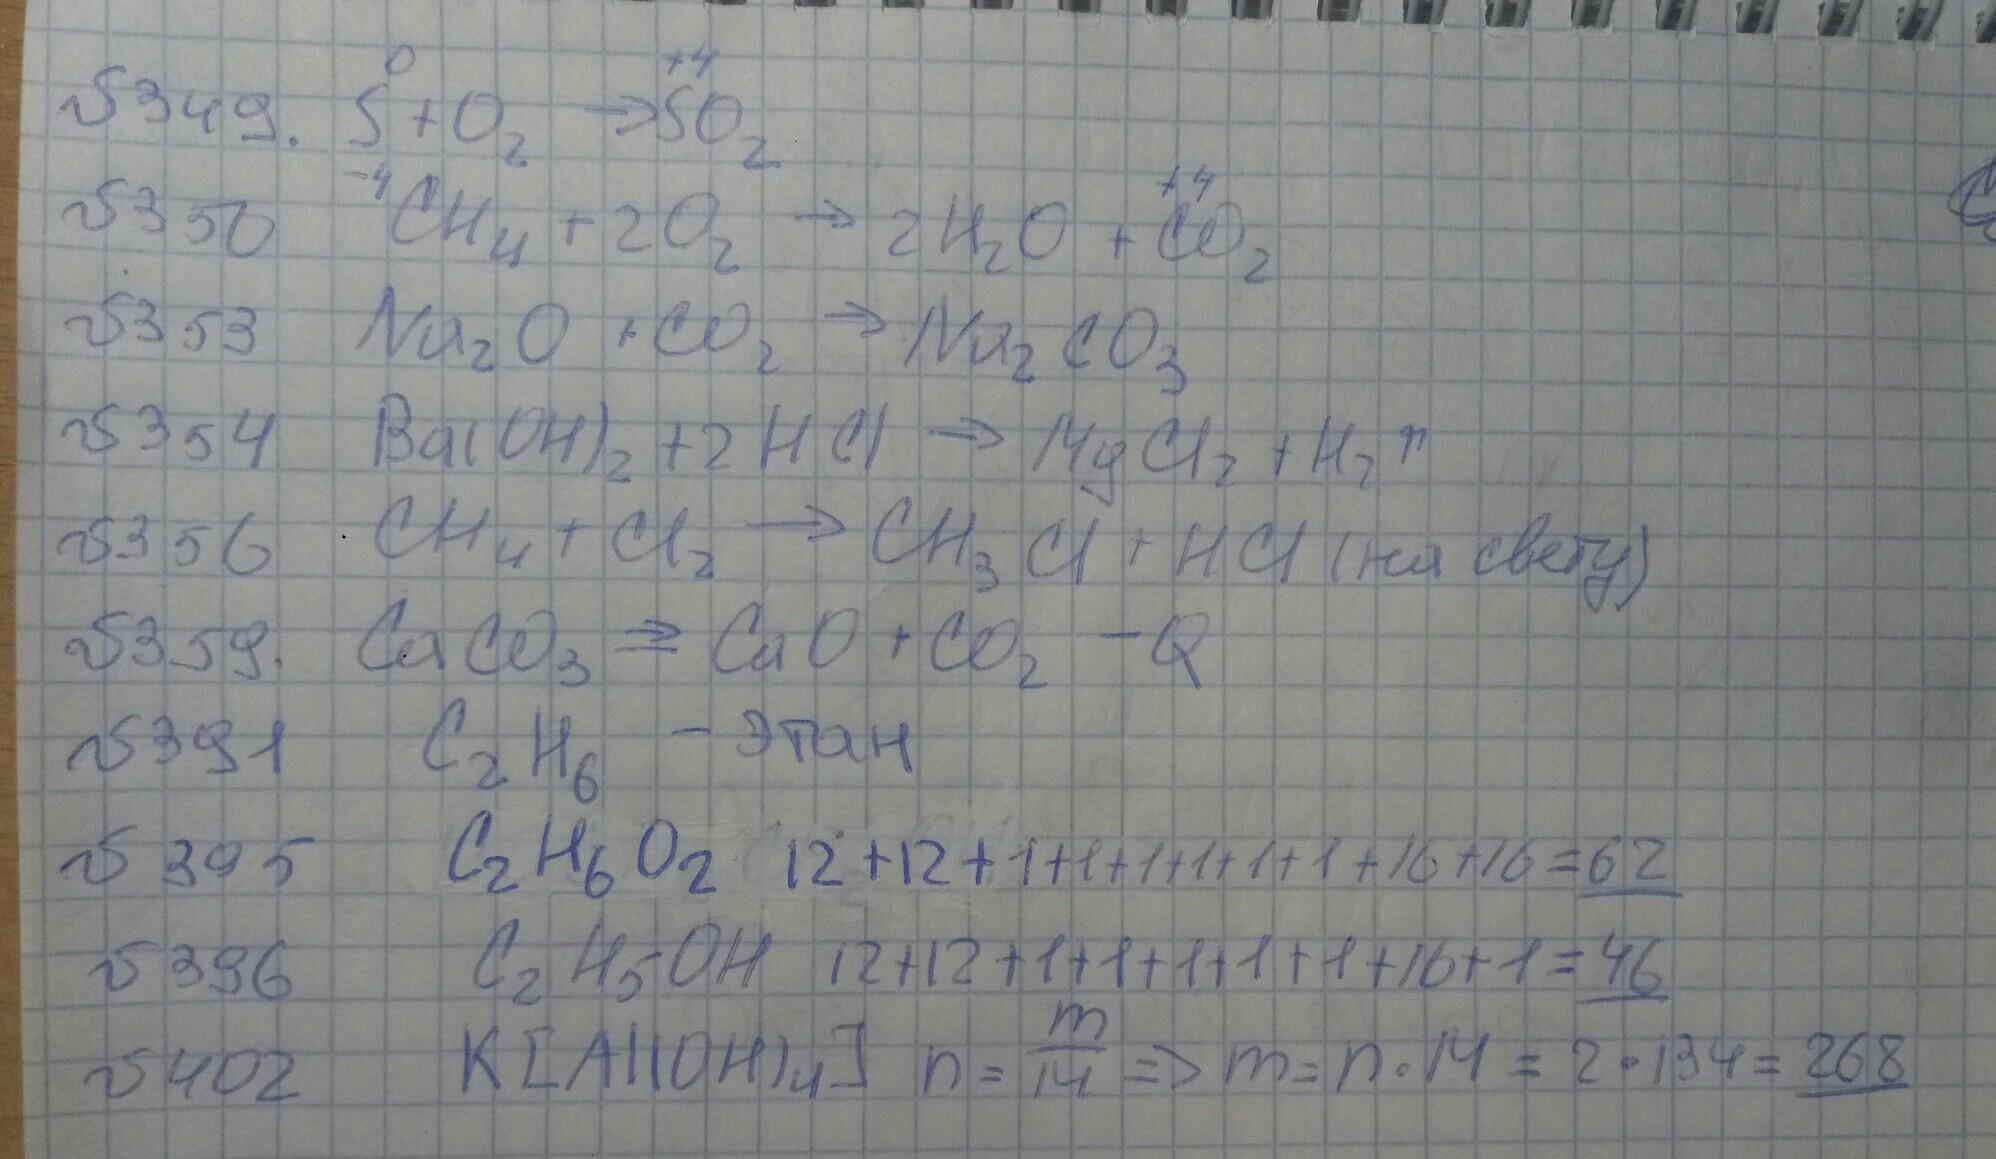 №349. S⁰ + O₂ → S⁺⁴O₂
№350 ⁻⁴CH₄ + 2O₂ → 2H₂O + C⁺⁴O₂
№353 Na₂O + CO₂ → Na₂CO₃
№354 Ba(OH)₂ + 2HCl → MgCl₂ + H₂↑
№356 CH₄ + Cl₂ → CH₃Cl + HCl (на свету)
№359. CaCO₃ ⇌ CaO + CO₂ – Q
№391 C₂H₆ – этан
№395 C₂H₆O₂ 12+12+1+1+1+1+1+1+16+16=62
№396 C₂H₅OH 12+12+1+1+1+1+1+16+1=46
№402 K[Al(OH)₄] n = m/M => m = n·M = 2·134 = 268